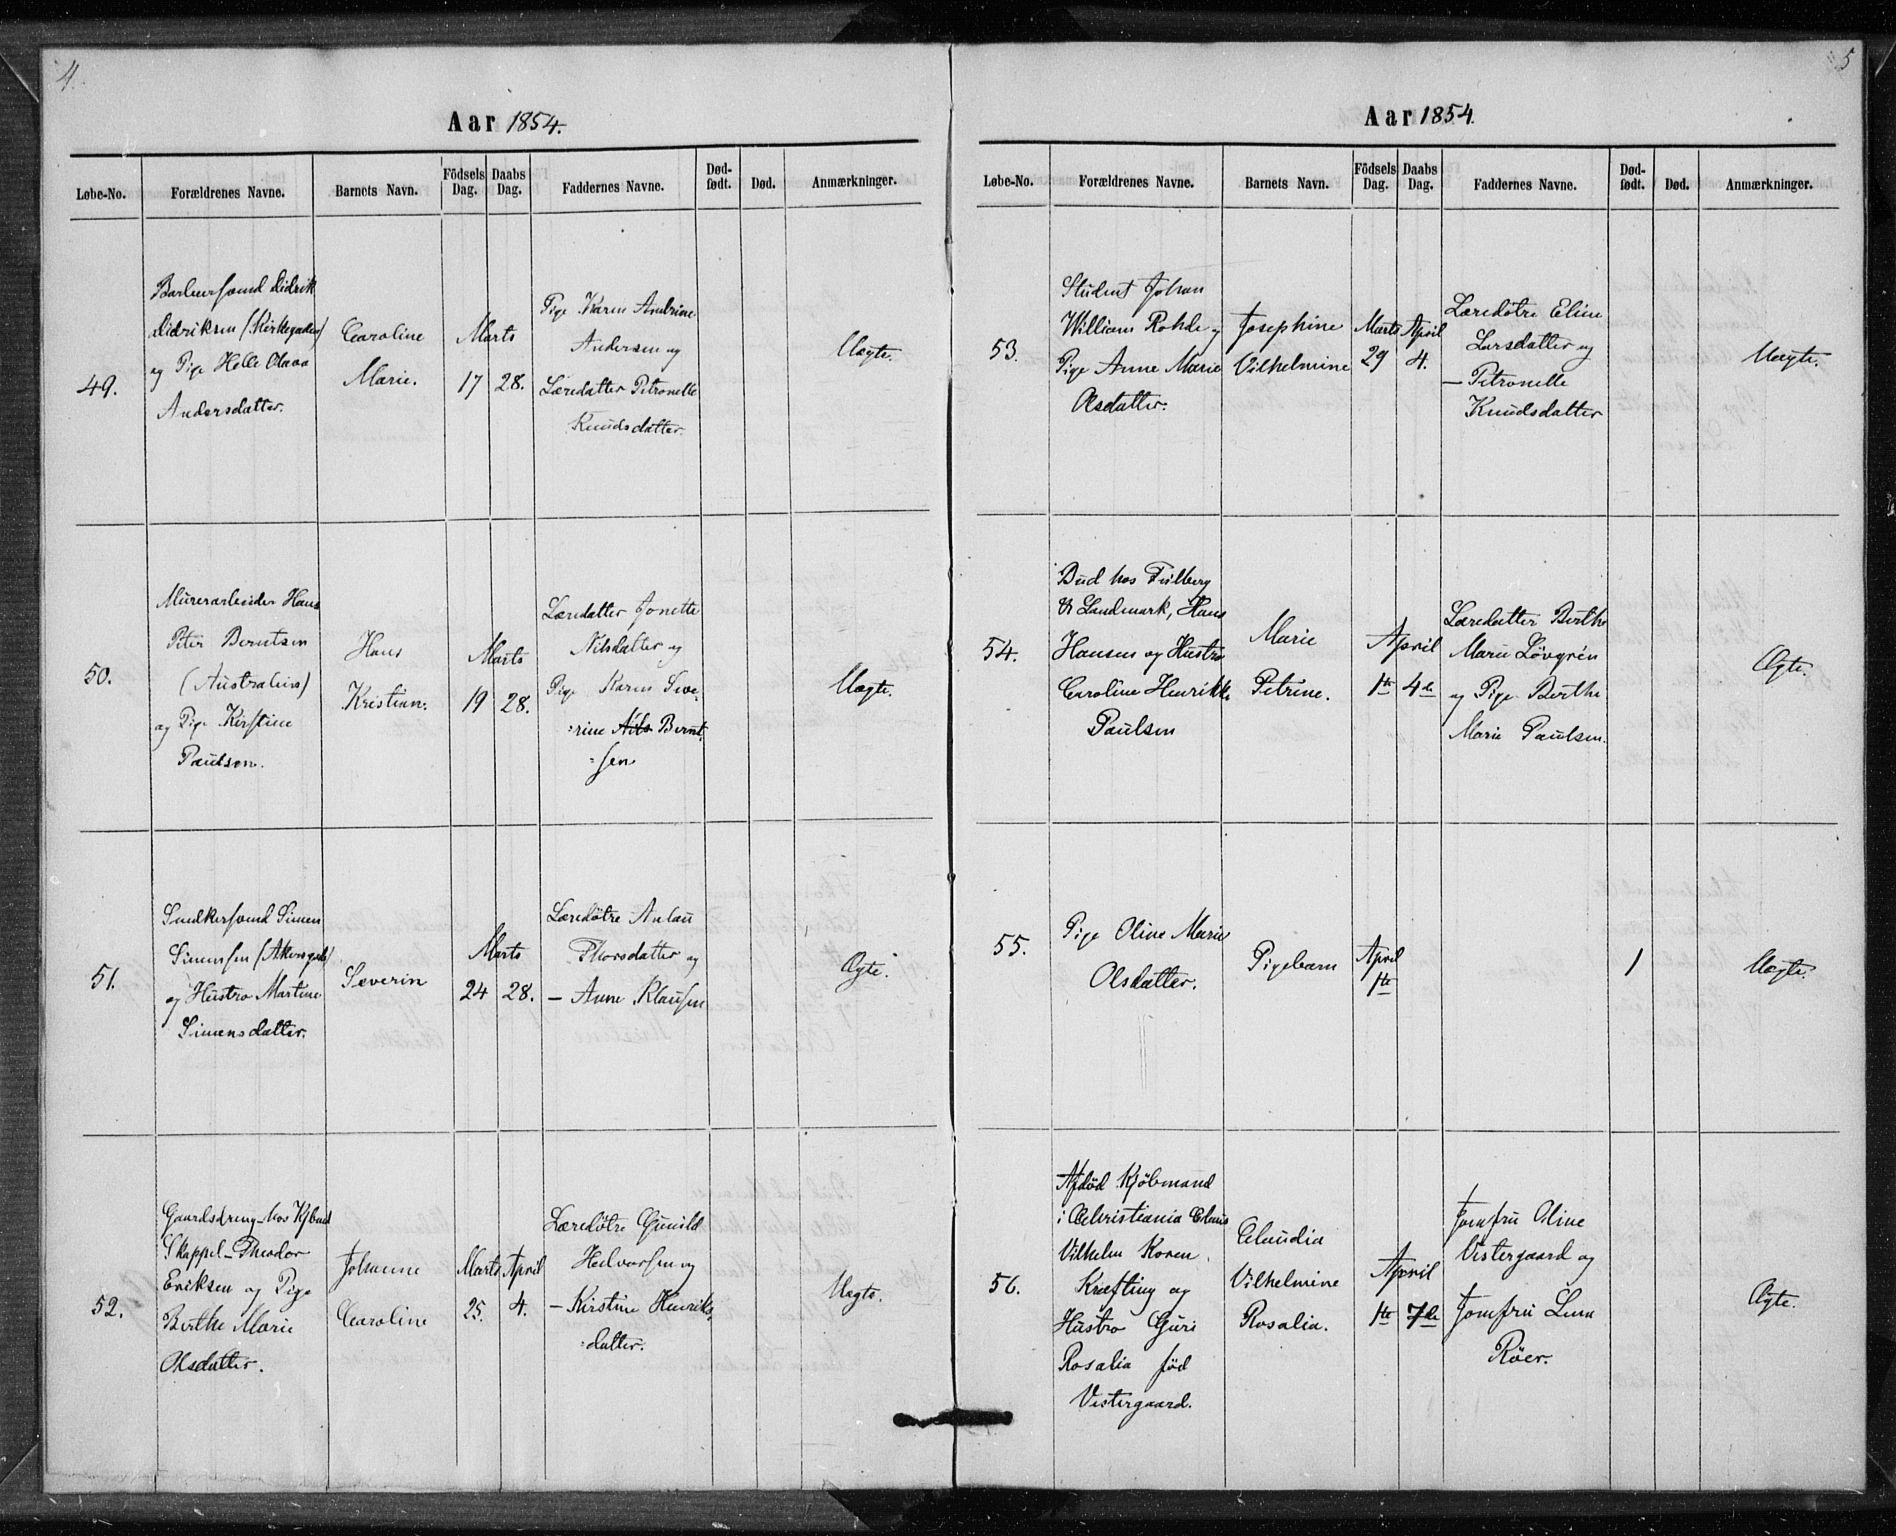 4.
Aar 1854.
Løbe-No.
Forældrenes Navne.
Barnets Navn.
Födsels Dag.
Daabs Dag.
Faddernes Navne.
Død-født.
Død.
Anmærkninger.
49.
Didrik
Didriksen (Kirkegaden)
og Pige Helle Olava
Andersdatter.
Caroline
Marie.
Marts
17 28.
Pige Karen Andrine
Andersen og
Læredatter Petronelle
Knudsdatter.
Uægte.
50.
Murerarbeider Hans
Peter Berntsen
(Australien)
og Pige Kirstine
Paulsen.
Hans
Kristian.
Marts
19 28.
Læredatter Jonette
Nilsdatter og
Pige Karen Seve-
rine Nils Bernt-
sen
Uægte.
51.
Snedkersvend Simen
Simensen (Akersgade)
og Hustro Martine
Simensdatter.
Severin
Marts
24 28.
Læredötre
Thorsdatter og
— Anne Klausen
Ægte.
52.
Gaardsdreng hos Kjbmd
Skappel - Theodor
Eriksen og Pige
Berthe Marie
Olsdatter.
Johanne
Caroline
Marts April
25. 4.
Læredötre Gunild
Halvorsen og
— Kirstine Henriks-
datter.
Uægte.
5
Aar 1854.
Løbe-No.
Forældrenes Navne.
Barnets Navn.
Födsels Dag.
Daabs Dag.
Faddernes Navne.
Død-født.
Død.
Anmærkninger.
53.
Student Johan
William Rohde og
Pige Anne Marie
Olsdatter.
Josephine
Vilhelmine
Marts April
29 4.
Læredötre Eline
Larsdatter og
— Petronelle
Knudsdatter
Uægte.
54.
Bud hos
& Landmark, Hans
Hansen og Hustro
Caroline Henrikke
Paulsen
Marie
Petrine.
April
1te 4de
Læredatter Berthe
Marie Lövgrén
og Pige Berthe
Marie Paulsen.
Ægte.
55.
Pige Oline Marie
Olsdatter.
Pigebarn
April
1te
1
Uægte.
56.
Afdöd Kjöbmand
i Christiania Claus
Vilhelm Koren
Kræfting og
Hustro Guri
Rosalia föd
Vestergaard.
Claudia
Vilhelmine
Rosalia.
April
1te 7de
Jomfru Oline
Vestergaard og
Jomfru Lena
Röer.
Ægte.